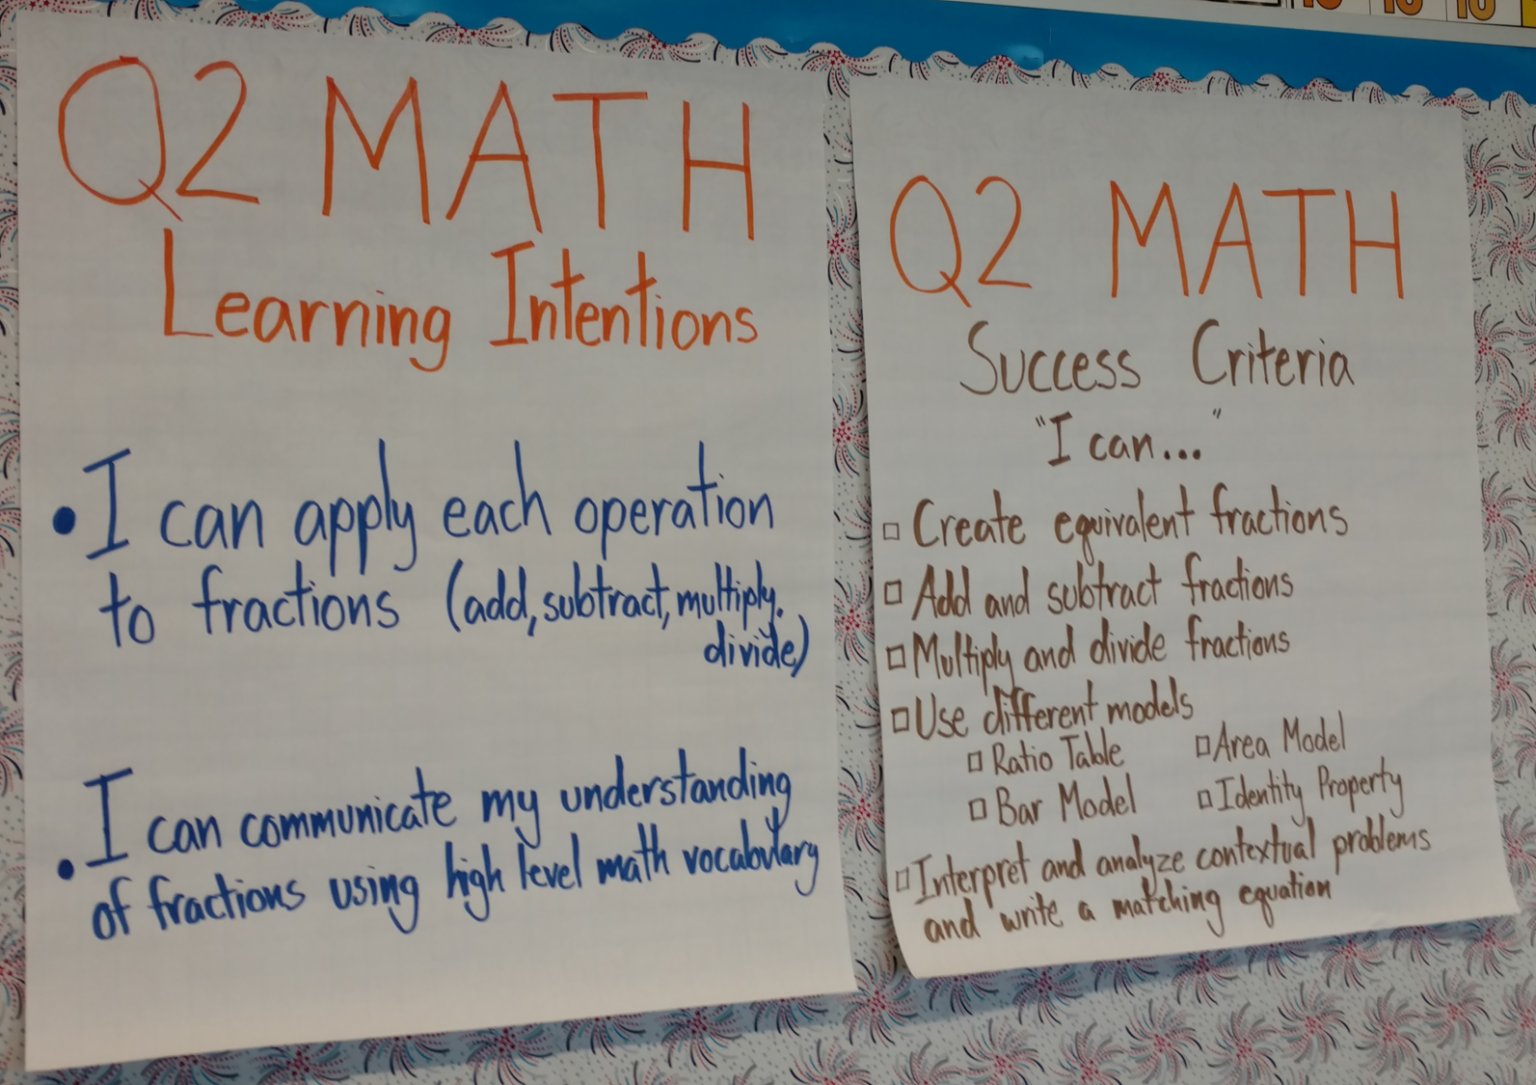 Q2 MATH
Learning Intentions
• I can apply each operation
to fractions (add, subtract, multiply.
divide)
• I can communicate my understanding
of fractions using high level math vocabulary
Q2 MATH
Success Criteria
"I can..."
□ Create equivalent fractions
□ Add and subtract fractions
□ Multiply and divide fractions
□ Use different models
□ Ratio Table □ Area Model
□ Bar Model □ Identity Property
□ Interpret and analyze contextual problems
and write a matching equation